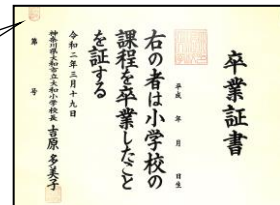 卒業証書
平成 年 月 日生
右の者は小学校の
課程を卒業したこと
を証する
令和二年三月十九日
神奈川県大和市立大和小学校長 吉原多美子
第 号